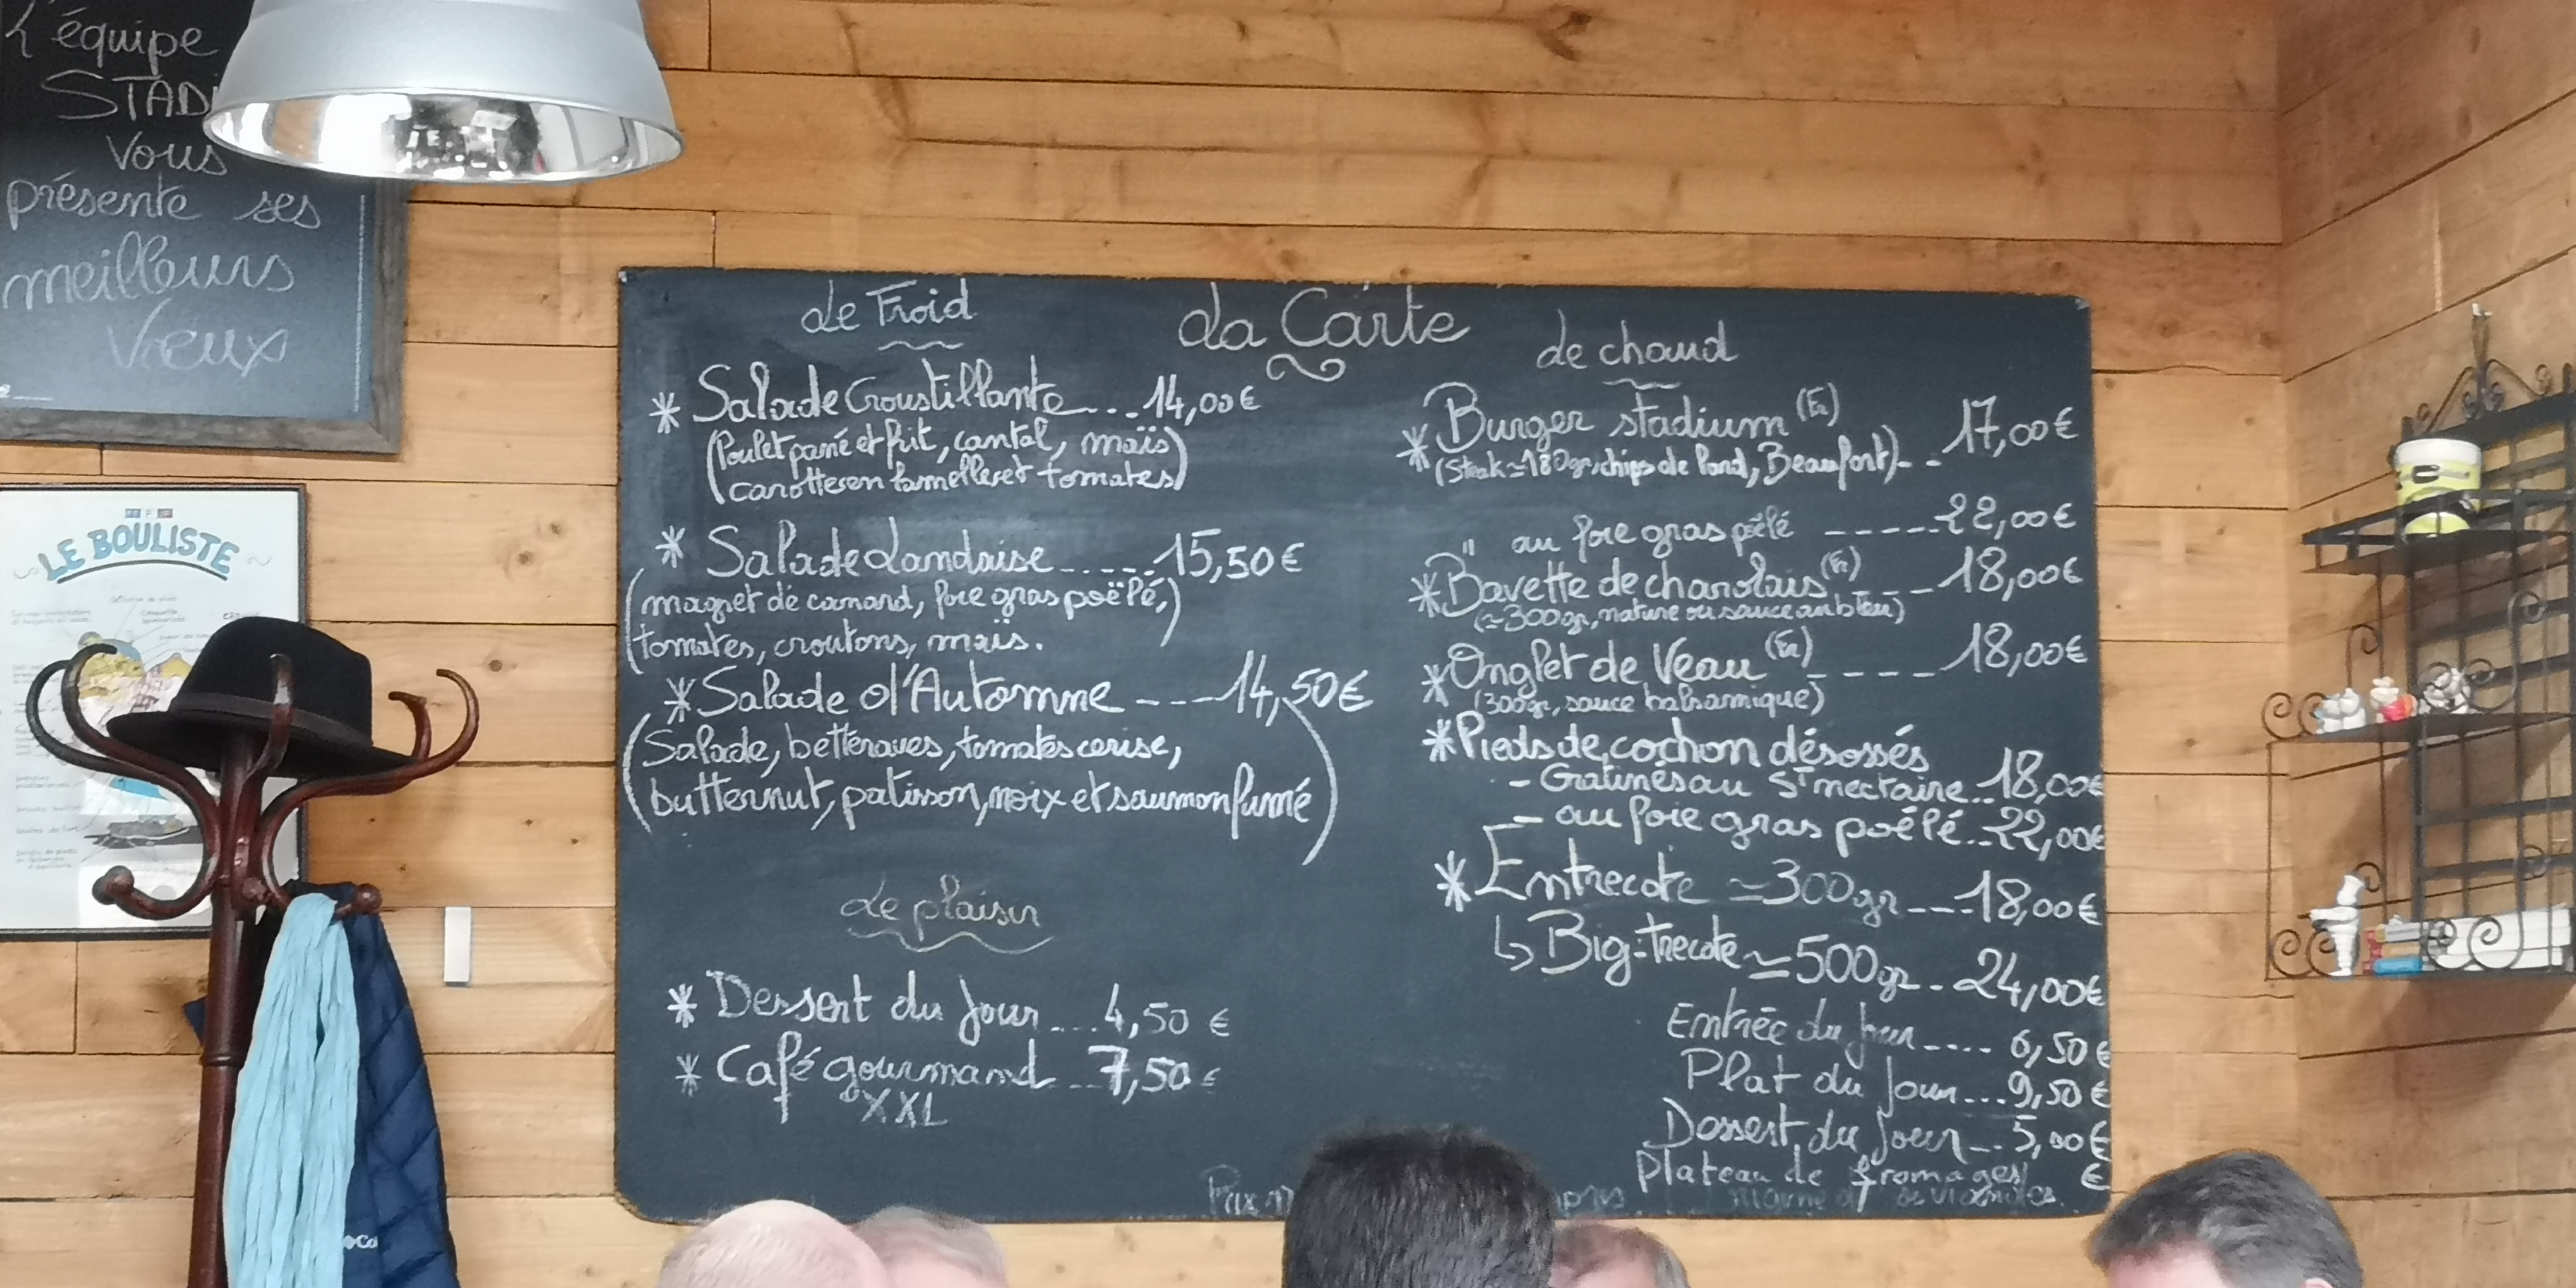 L'équipe
STADI
vous
présente ses
meilleurs
Vœux
LE BOULISTE
La Carte
Le Froid
* Salade Croustillante...14,00€
(Poulet pané et frit, cantal, maïs
carottes en lamelles et tomates)
* Salade Landaise.....15,50€
(magret de canard, foie gras poëlé,)
tomates, croutons, maïs.
* Salade d'Automne ----14,50€
(Salade, betteraves, tomates cerise,
butternut, patisson, noix et saumon fumé)
Le plaisir
* Dessert du Jour....4,50 €
* Café gourmand...7,50 €
XXL
Le chaud
* Burger stadium (Fr)
(Steak ≃180gr, chips de lard, Beaufort)...17,00€
" au foie gras poêlé -----22,00€
* Bavette de charolais (Fr) ----18,00€
(≃300gr, nature ou sauce au bleu)
* Onglet de Veau (Fr) ----18,00€
(300gr, sauce balsamique)
* Pieds de cochon désossés
- Gratinés au St nectaire..18,00€
- au foie gras poêlé...22,00€
* Entrecote ≃300gr----18,00€
↳ Big-trecote ≃500gr..24,00€
Entrée du Jour.... 6,50€
Plat du Jour....9,50€
Dessert du Jour...5,00€
Plateau de fromages €
Prix